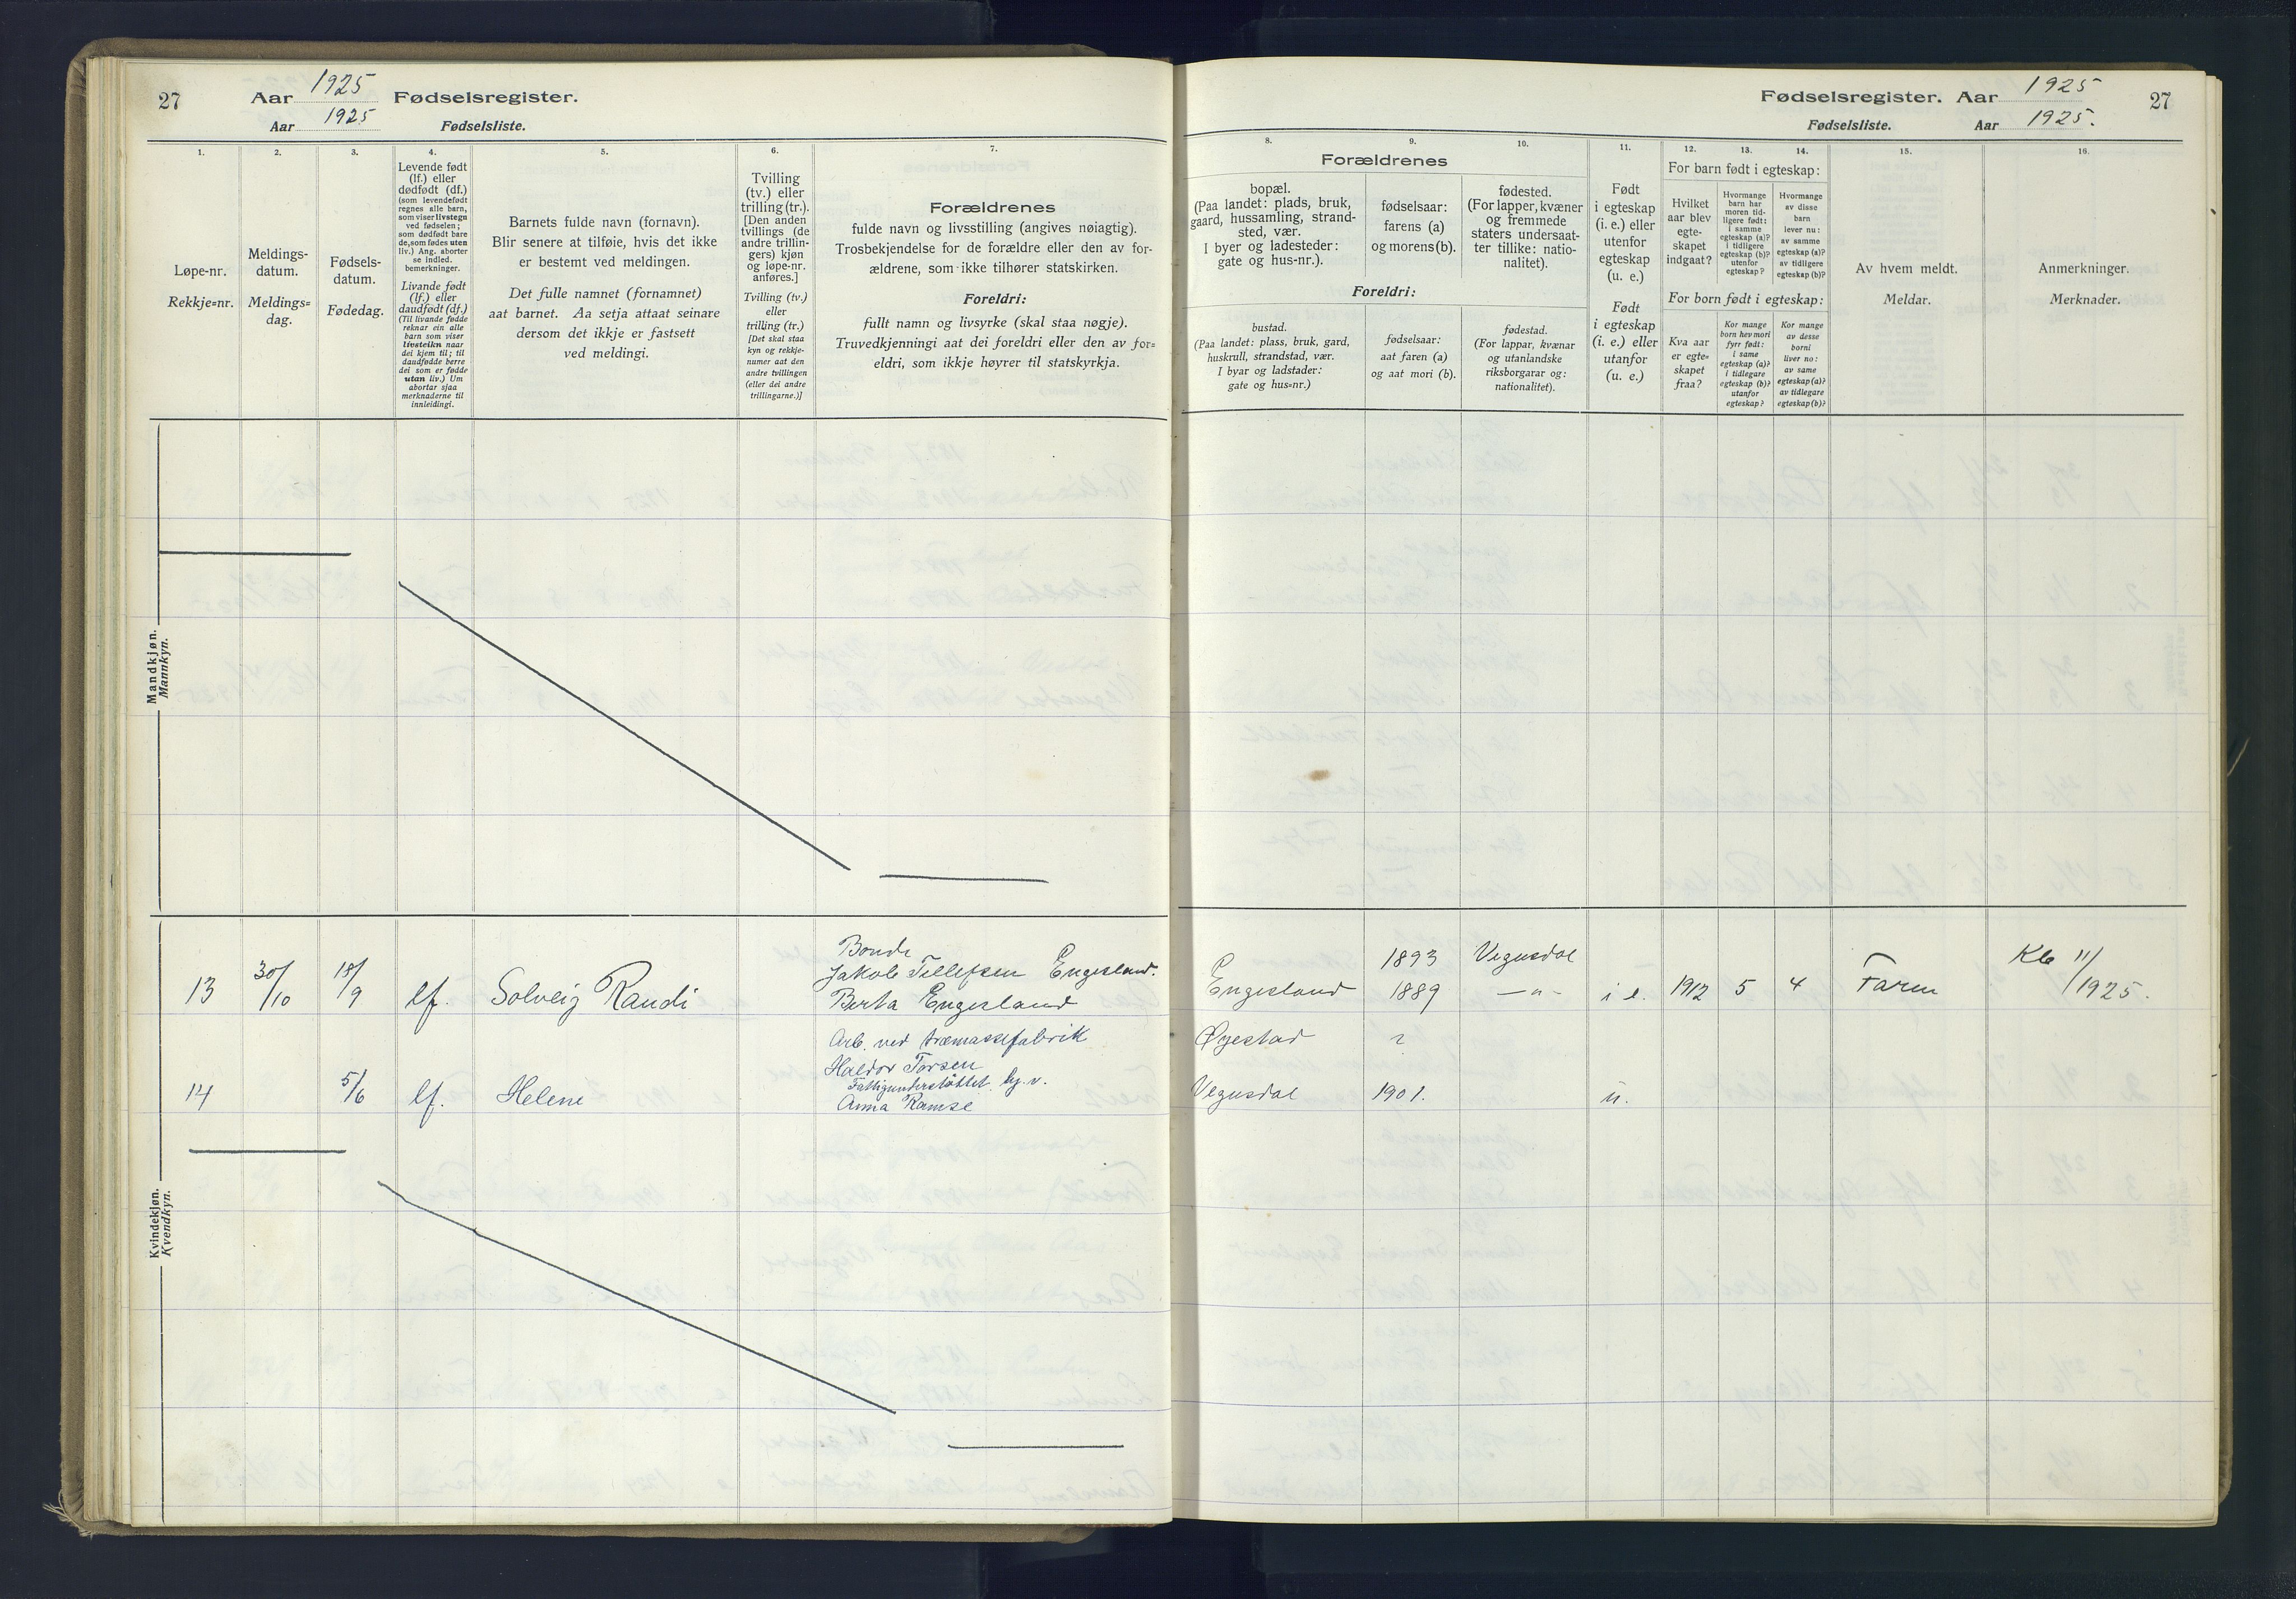 27
Aar 1925 Fødselsregister.
Aar 1925 Fødselsliste.
1.
2.
3.
4.
5.
6.
7.
Løpe-nr.
Rekkje=nr.
Meldings-
datum.
Meldings=
dag.
Fødsels-
datum.
Fødedag.
Levende født
(lf.) eller
dødfødt (df.)
(som levendefødt
regnes alle barn,
som viser livstegn
ved fødselen;
som dødfødt bare
de, som fødes uten
liv.) Ang. aborter
se indled.
bemerkninger.
Livande født
(lf.) eller
daudfødt (df.)
(Til livande fødde
reknar ein alle
barn som viser
livsteikn naar
dei kjem til; til
daudfødde berre
dei som er fødde
utan liv.) Um
abortar sjaa
merknaderne til
innleidingi.
Barnets fulde navn (fornavn).
Blir senere at tilføie, hvis det ikke
er bestemt ved meldingen.
Det fulle namnet (fornamnet)
aat barnet. Aa setja attaat seinare
dersom det ikkje er fastsett
ved meldingi.
Tvilling
(tv.) eller
trilling (tr.).
[Den anden
tvillings (de
andre trillin-
gers) kjøn
og løpe-nr.
anføres.]
Tvilling (tv.)
eller
trilling (tr.)
[Det skal staa
kyn og rekkje-
numer aat den
andre tvillingen
(eller dei andre
trillingarne.)]
Forældrenes
fulde navn og livsstilling (angives nøiagtig).
Trosbekjendelse for de forældre eller den av for-
ældrene, som ikke tilhører statskirken.
Foreldri:
fullt namn og livsyrke (skal staa nøgje).
Truvedkjenningi aat dei foreldri eller den av for=
eldri, som ikkje høyrer til statskyrkja.
Mandkjøn.
Mannkyn.
Kvindekjøn.
Kvendkyn.
13 30/10 18/9 lf. Solveig Randi
Bonde
Jakob Tellefsen Engesland.
Berta Engesland
14 5/6 lf. Helene
Arb. ved træmassefabrik
Haldor Torsen
Fattigunderstøttet
Anna Ramse
Fødselsregister. Aar 1925
27
Fødselsliste. Aar 1925.
8.
9.
10.
11.
12.
13.
14.
15.
16.
Forældrenes
bopæl.
(Paa landet: plads, bruk,
gaard, hussamling, strand-
sted, vær.
I byer og ladesteder:
gate og hus-nr.).
fødselsaar:
farens (a)
og morens (b).
fødested.
(For lapper, kvæner
og fremmede
staters undersaat-
ter tillike: natio-
nalitet).
Foreldri:
bustad.
(Paa landet: plass, bruk, gard,
huskrull, strandstad, vær.
I byar og ladstader:
gate og hus=nr.)
fødselsaar:
aat faren (a)
og aat mori (b).
fødestad.
(For lappar, kvænar
og utanlandske
riksborgarar og:
nationalitet).
Født
i egteskap
(i. e.) eller
utenfor
egteskap
(u. e.)
Født
i egteskap
(i. e.) eller
utanfor
egteskap
(u. e.)
For barn født i egteskap:
Hvilket
aar blev
egte-
skapet
indgaat?
Hvormange
barn har
moren tid-
ligere født:
i samme
egteskap (a)?
i tidligere
egteskap (b)?
utenfor
egteskap?
Hvormange
av disse
barn
lever nu:
av samme
egteskap (a)?
av tidligere
egteskap (b)?
For born født i egteskap:
Kva aar
er egte=
skapet
fraa?
Kor mange
born hev mori
fyrr født:
i same
egteskap (a)?
i tidlegare
egteskap (b)?
utanfor
egteskap?
Kor mange
av desse
borni
liver no:
av same
egteskap (a)?
av tidlegare
egteskap (b)?
Av hvem meldt.
Meldar.
Anmerkninger.
Merknader.
1893 Vegusdal
Engesland 1889 —"— i e. 1912 5 4 Faren Kb 11/1925.
Øyestad ?
Vegusdal 1901. u.